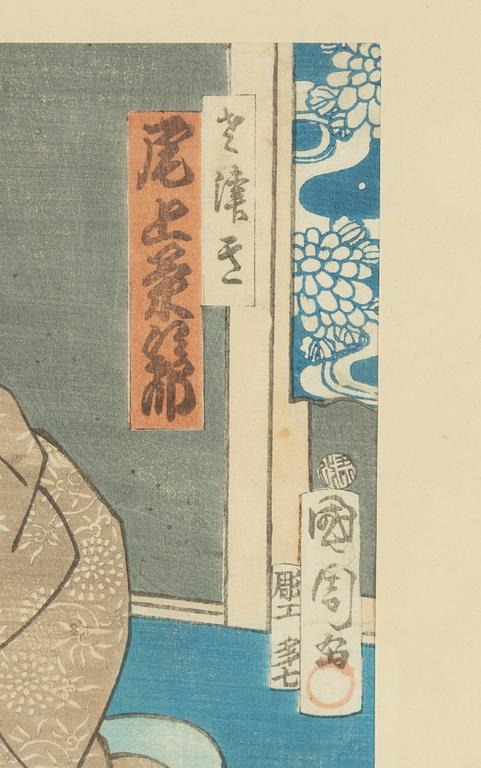 さ津き
尾上菊次郎
國周画
彫工 多七